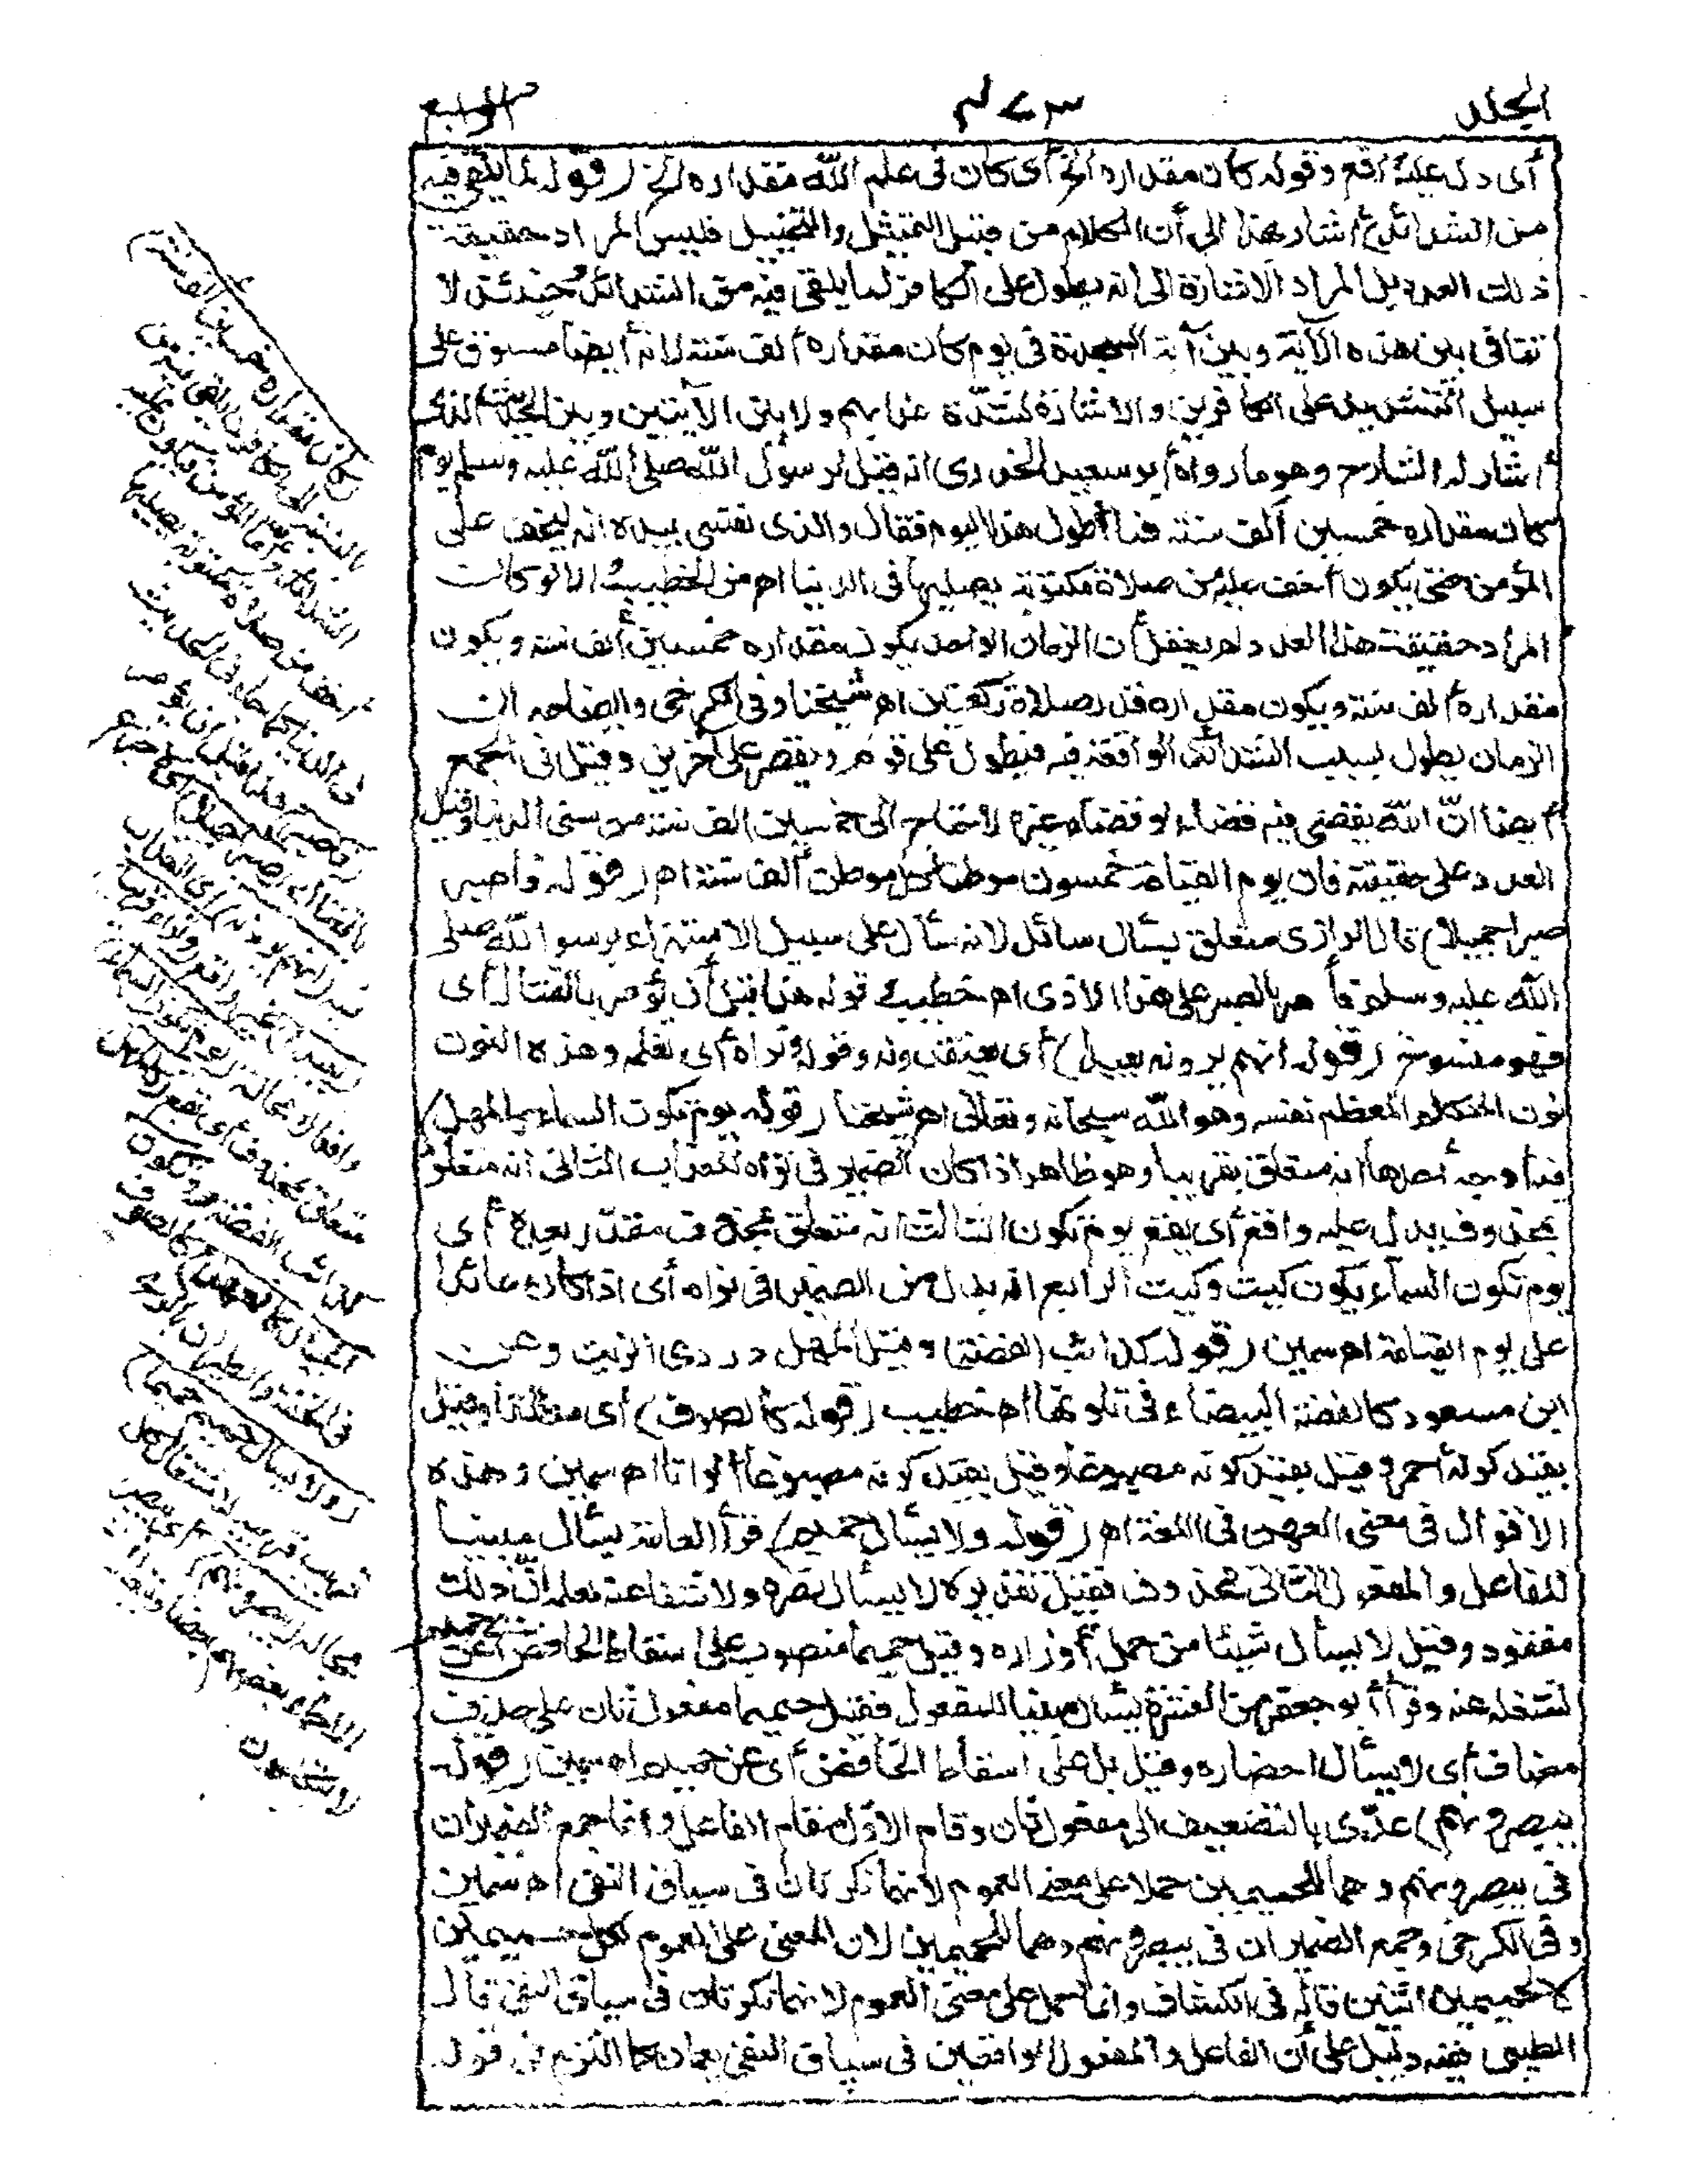 المجلد
الرابع
أى دل عليه واقع وقوله كان مقداره الخ أى كان فى علم الله مقداره الخ (قوله لما يلقى فيه
من الشدائد) أشار بهذا الى أن الكلام من قبيل التمثيل والتخييل فليس المراد حقيقة
ذلك العدد بل المراد الاشارة الى انه يطول على الكافر لما يلقى فيه من الشدائد حينئذ لا
تنافى بين هذه الآية وبين آية السجدة فى يوم كان مقداره ألف سنة لانه أيضا مسوق على
سبيل التشديد على الكافرين والاشارة لشدة عذابهم ولا بين الآيتين وبين الحديث الذى
أشار له الشارح وهو ما رواه أبو سعيد الخدرى انه قيل لرسول الله صلى الله عليه وسلم يوم
كان مقداره خمسين ألف سنة فما أطول هذا اليوم فقال والذى نفسى بيده انه ليخف على
المؤمن حتى يكون أخف عليه من صلاة مكتوبة يصليها فى الدنيا اه من الخطيب اذ لو كانت
المراد حقيقة هذا العدد لم يعقل أن الزمان الواحد يكون مقداره خمسين ألف سنة ويكون
مقداره ألف سنة ويكون مقداره قدر صلاة ركعتين اه شيخنا وفى الكرخى وايضاحه ان
الزمان يطول بسبب الشدائد الواقعة فيه فيطول على قوم ويقصر على آخرين وقيل فى الجمع
أيضا انّ الله يقضى فيه قضاء لو قضاه غيره لاحتاج الى خمسين ألف سنة من سنى الدنيا وقيل
العدد على حقيقته فان يوم القيامة خمسون موطنا كل موطن ألف سنة اه (قوله فاصبر
صبرا جميلا) قال الرازى متعلق بسأل سائل لانه سأل على سبيل الاستهزاء برسول الله صلى
الله عليه وسلم فأمر بالصبر على هذا الاذى اه خطيب قوله هذا قبل أن يؤمر بالقتال أى
فهو منسوخ (قوله انهم يرونه بعيدا) أى يعتقدونه وقوله ونراه أى نعلمه وهذه النون
نون المتكلم المعظم نفسه وهو الله سبحانه وتعالى اه شيخنا (قوله يوم تكون السماء كالمهل)
فيه أوجه أحدها انه متعلق بقريبا وهو ظاهر اذا كان الضمير فى نراه للعذاب الثانى انه متعلق
بمحذوف يدل عليه واقع أى يقع يوم تكون الثالث انه متعلق بمحذوف مقدّر بعده أى
يوم تكون السماء يكون كيت وكيت الرابع انه بدل من الضمير فى نراه أى اذا كان عائدا
على يوم القيامة اه سمين (قوله كذائب الفضة) وقيل المهل دردى الزيت وعن
ابن مسعود كالفضة البيضاء فى تلونها اه خطيب (قوله كالصوف) أى مطلقا وقيل
بقيد كونه أحمر وقيل بقيد كونه مصبوغا وقيل بقيد كونه مصبوغا ألوانا اه سمين وهذه
الاقوال فى معنى العهن فى اللغة اه (قوله ولا يسأل حميم) قرأ العامة يسأل مبنيا
للفاعل والمفعول الثانى محذوف فقيل تقديره لا يسأل نصره ولا شفاعته لعلمه انّ ذلك
مفقود وقيل لا يسأل شيئا من حمل أوزاره وقيل حميما منصوب على اسقاط الخافض أى عن حميم
لشغله عنه وقرأ أبو جعفر من العشرة يسأل مبنيا للمفعول فقيل حميما مفعول ثان على حذف
مضاف أى لا يسأل احضاره وقيل بل على اسقاط الخافض أى عن حميم اه سمين (قوله
يبصرونهم) عدّى بالتضعيف الى مفعول ثان وقام الاوّل مقام الفاعل وانما جمع الضميران
فى يبصرونهم وهما للحميمين حملا على معنى العموم لانهما نكرتان فى سياق النفى اه سمين
وفى الكرخى وجمع الضميران فى يبصرونهم وهما للحميمين لان المعنى على العموم لكل حميمين
لا لحميمين اثنين قاله فى الكشاف وانما حمل على معنى العموم لانهما نكرتان فى سياق النفى قال
الطيبى فيه دليل على أن الفاعل والمفعول الواقعين فى سياق النفى يعمان كما التزم فى قوله
كان مقداره خمسين ألف سنة
أخف من صلاة مكتوبة يصليها
فى الدنيا كما جاء فى الحديث
متعلق بمحذوف أى يقع
كذائب الفضة وتكون
الجبال كالعهن كالصوف
فى الخفة والطيران بالريح
ولا يسأل حميم حميما
قريب قريبه لاشتغال كل
بحاله يبصرونهم أى يبصر